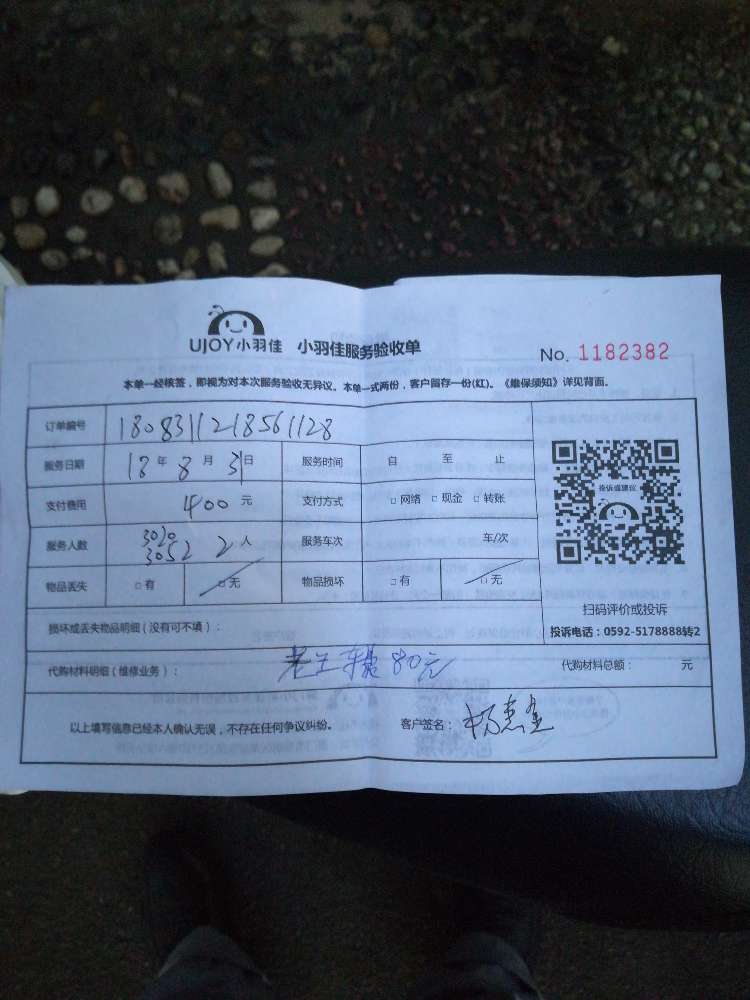 UJOY小羽佳 小羽佳服务验收单 No. 1182382
本单一经核签，即视为对本次服务验收无异议。本单一式两份，客户留存一份(红)。《维保须知》详见背面。
订单编号 1808311218561128
服务日期 18年 8月 31日 服务时间 自 至 止
支付费用 400元 支付方式 □网络 □现金 □转账
服务人数 3020 3052 2人 服务车次 车/次
物品丢失 □有 □无 物品损坏 □有 □无
投诉或建议
扫码评价或投诉
投诉电话：0592-5178888转2
损坏或丢失物品明细（没有可不填）：
代购材料明细（维修业务）： 80元 代购材料总额： 元
以上填写信息已经本人确认无误，不存在任何争议纠纷。 客户签名：